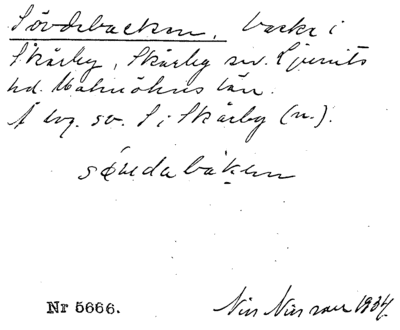 Sövdebacken, backe i
Skårby, Skårby sn. Ljunits
hd. Malmöhus län.
Å lvg. sv. S i Skårby (n.).
söudabakæn
Nr 5666.
Nils Nilsson 1934.